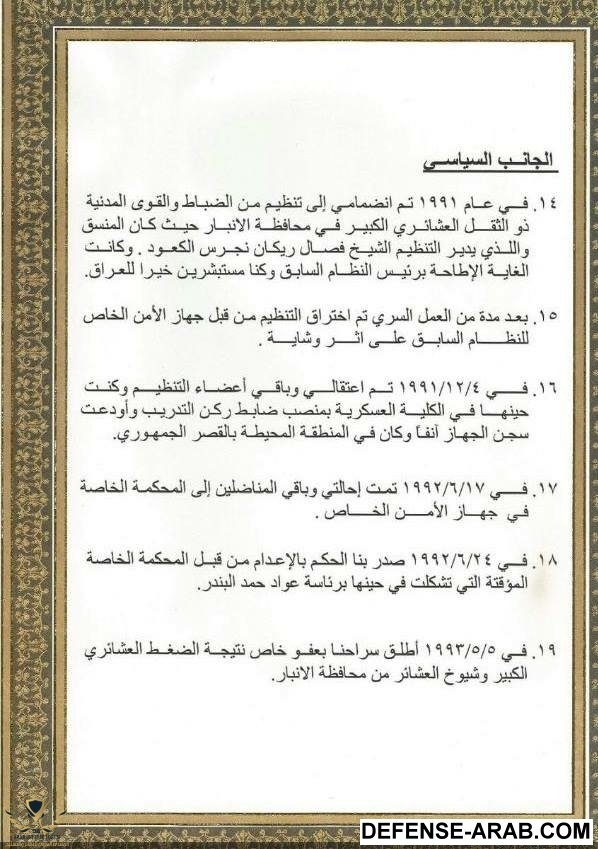 الجانب السياسي
١٤. في عام ١٩٩١ تم انضمامي إلى تنظيم من الضباط والقوى المدنية
ذو الثقل العشائري الكبير في محافظة الانبار حيث كان المنسق
واللذي يدير التنظيم الشيخ فصال ريكان نجرس الكعود . وكانت
الغاية الإطاحة برئيس النظام السابق وكنا مستبشرين خيرا للعراق.
١٥. بعد مدة من العمل السري تم اختراق التنظيم من قبل جهاز الأمن الخاص
للنظام السابق على اثر وشاية .
١٦. في ١٩٩١/١٢/٤ تم اعتقالي وباقي أعضاء التنظيم وكنت
حينها في الكلية العسكرية بمنصب ضابط ركن التدريب وأودعت
سجن الجهاز آنفاً وكان في المنطقة المحيطة بالقصر الجمهوري.
١٧. في ١٩٩٢/٦/١٧ تمت إحالتي وباقي المناضلين إلى المحكمة الخاصة
في جهاز الأمن الخاص .
١٨. في ١٩٩٢/٦/٢٤ صدر بنا الحكم بالإعدام من قبل المحكمة الخاصة
المؤقتة التي تشكلت في حينها برئاسة عواد حمد البندر.
١٩. في ١٩٩٣/٥/٥ أطلق سراحنا بعفو خاص نتيجة الضغط العشائري
الكبير وشيوخ العشائر من محافظة الانبار.
DEFENSE-ARAB.COM